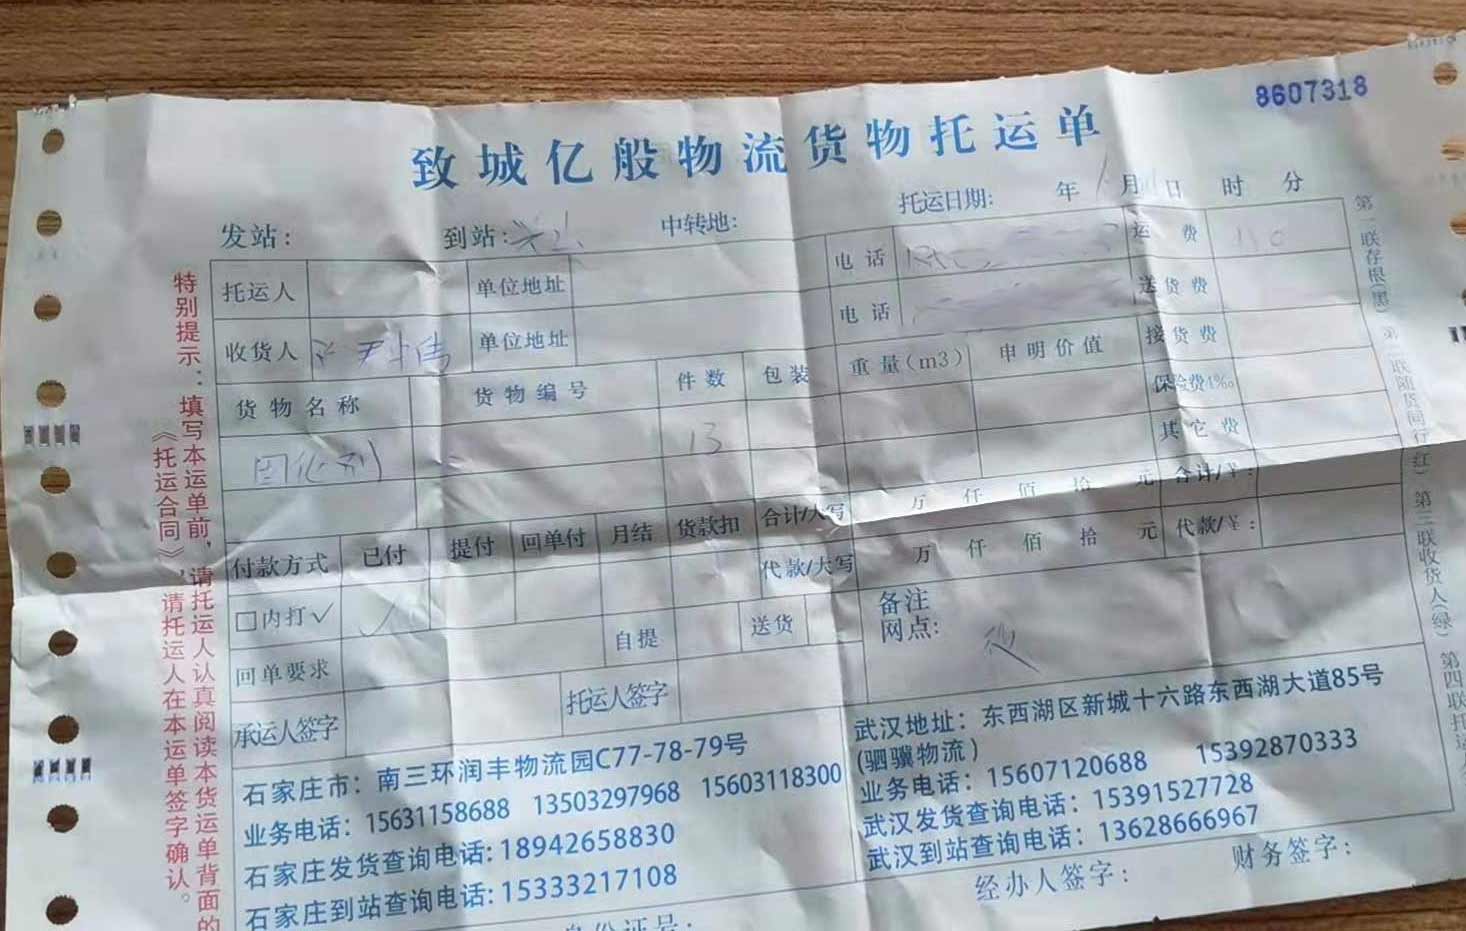 8607318
致城亿般物流货物托运单
托运日期: 年 月 日 时 分
发站: 到站: 中转地:
托运人 单位地址 电话 运费
收货人 单位地址 电话 送货费
货物名称 货物编号 件数 包装 重量(m3) 申明价值 接货费
保险费4‰
固化剂 13 其它费
合计/大写 万 仟 佰 拾 元 合计/¥:
付款方式 已付 提付 回单付 月结 货款扣 代款/大写 万 仟 佰 拾 元 代款/¥:
□内打✓ ✓
回单要求 自提 送货
备注
网点:
承运人签字 托运人签字
石家庄市: 南三环润丰物流园C77-78-79号
业务电话: 15631158688 13503297968 15603118300
石家庄发货查询电话: 18942658830
石家庄到站查询电话: 15333217108
武汉地址: 东西湖区新城十六路东西湖大道85号
(驷骥物流)
业务电话: 15607120688 15392870333
武汉发货查询电话: 15391527728
武汉到站查询电话: 13628666967
经办人签字: 财务签字:
身份证号:
特别提示: 填写本运单前, 请托运人认真阅读本货运单背面的
《托运合同》, 请托运人在本运单签字确认。
第一联存根(黑) 第二联随货同行(红) 第三联收货人(绿) 第四联托运人